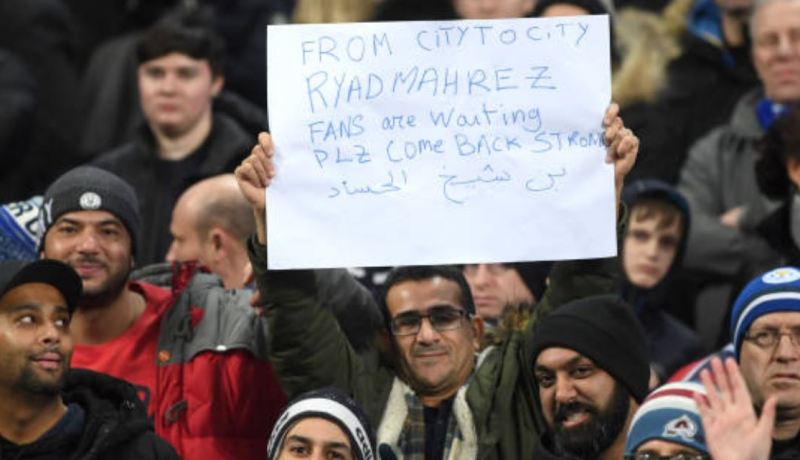 FROM CiTYTOCiTY
RYADMAHREZ
FANS are Waiting
PLZ Come BACK STRON
بن شيخ الحساد